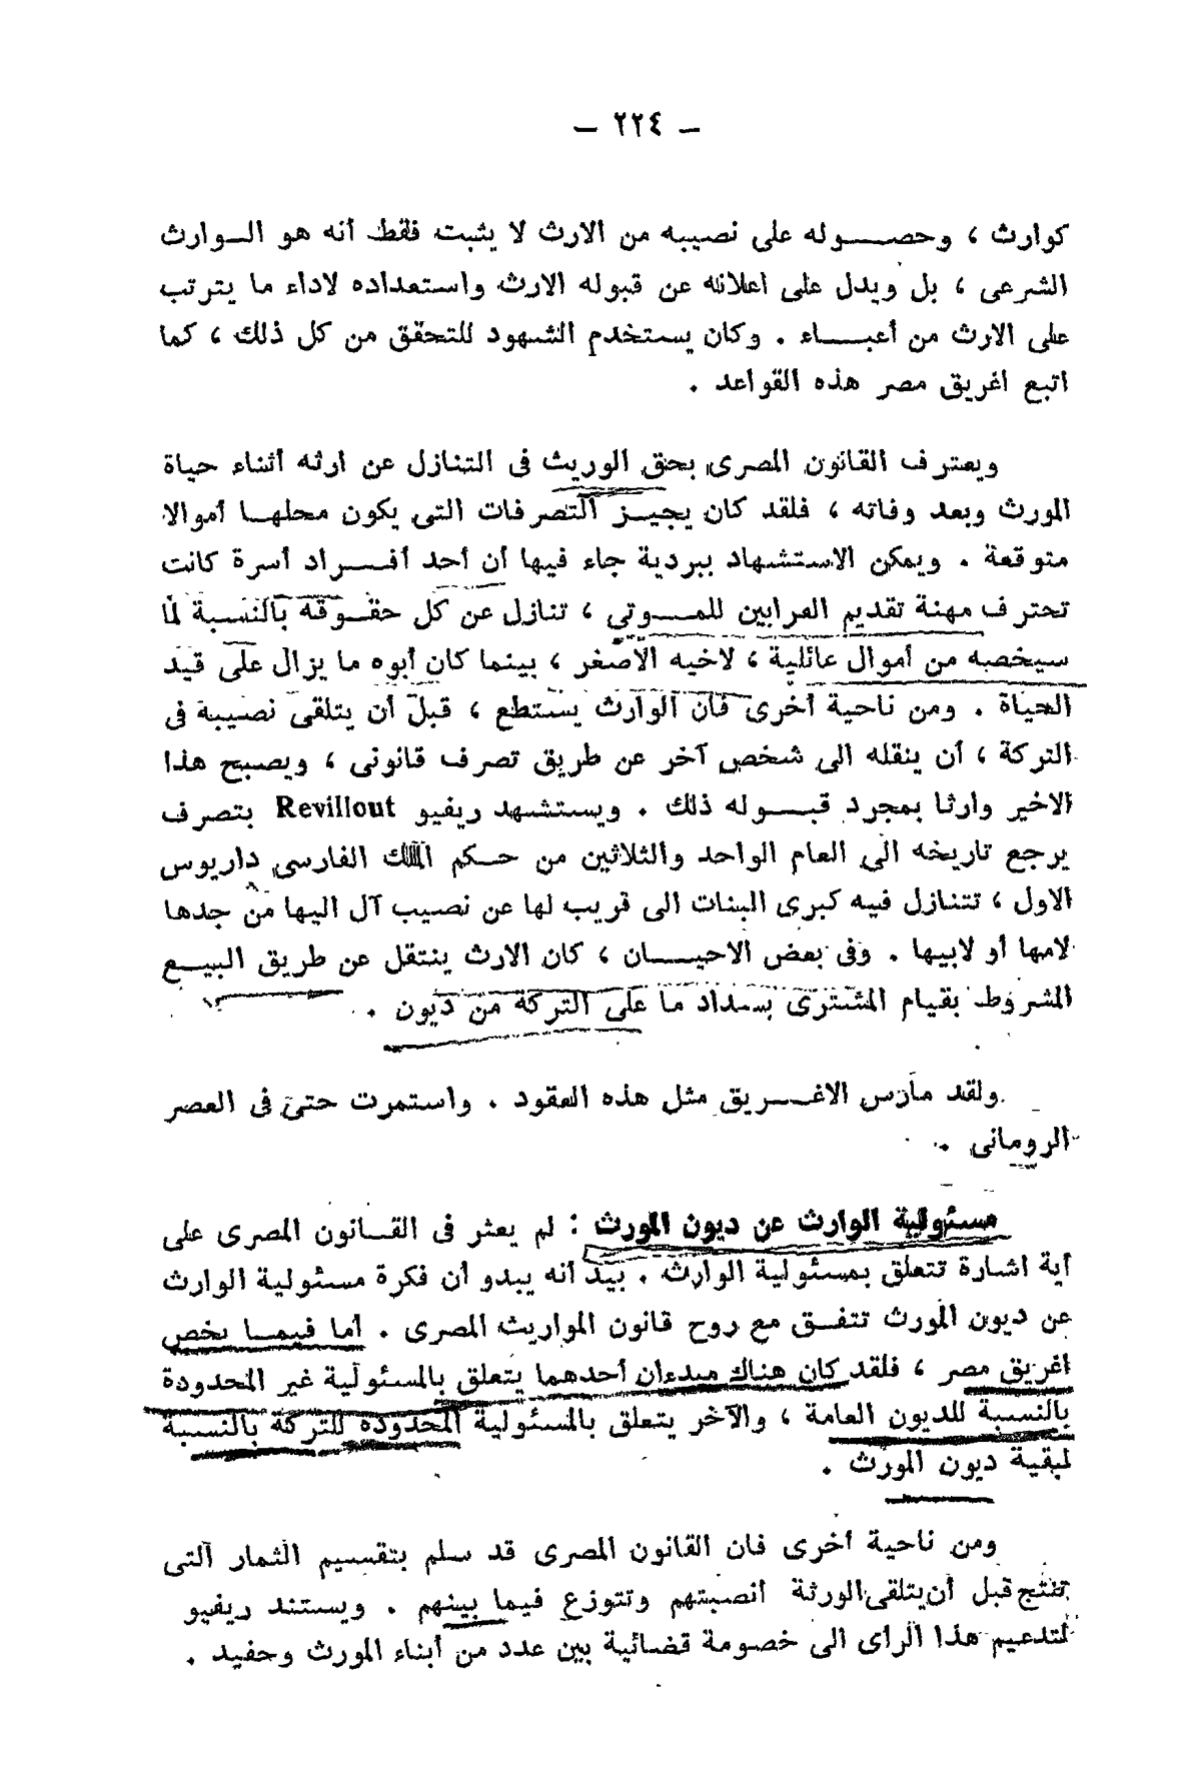 – ٢٢٤ –
كوارث ، وحصوله على نصيبه من الارث لا يثبت فقط أنه هو الوارث
الشرعى ، بل ويدل على اعلانه عن قبوله الارث واستعداده لاداء ما يترتب
على الارث من أعباء . وكان يستخدم الشهود للتحقق من كل ذلك ، كما
اتبع اغريق مصر هذه القواعد .
ويعترف القانون المصرى بحق الوريث فى التنازل عن ارثه أثناء حياة
المورث وبعد وفاته ، فلقد كان يجيز التصرفات التى يكون محلها أموالا
متوقعة . ويمكن الاستشهاد ببردية جاء فيها أن أحد أفراد أسرة كانت
تحترف مهنة تقديم القرابين للموتي ، تنازل عن كل حقوقه بالنسبة لما
سيخصبه من أموال عائلية ، لاخيه الأصغر ، بينما كان أبوه ما يزال على قيد
الحياة . ومن ناحية أخرى فان الوارث يستطع ، قبل أن يتلقى نصيبة فى
التركة ، أن ينقله الى شخص آخر عن طريق تصرف قانونى ، ويصبح هذا
الاخير وارثا بمجرد قبوله ذلك . ويستشهد ريفيو Revillout بتصرف
يرجع تاريخه الى العام الواحد والثلاثين من حكم الملك الفارسى داريوس
الاول ، تتنازل فيه كبرى البنات الى قريب لها عن نصيب آل اليها من جدها
لامها أو لابيها . وفى بعض الاحيان ، كان الارث ينتقل عن طريق البيع
المشروط بقيام المشترى بسداد ما على التركة من ديون .
ولقد مارس الاغريق مثل هذه العقود . واستمرت حتى فى العصر
الرومانى .
مسئولية الوارث عن ديون المورث : لم يعثر فى القانون المصرى على
أية اشارة تتعلق بمسئولية الوارث . بيد أنه يبدو أن فكرة مسئولية الوارث
عن ديون المورث تتفق مع روح قانون المواريث المصرى . أما فيما يخص
اغريق مصر ، فلقد كان هناك مبدءان أحدهما يتعلق بالمسئولية غير المحدودة
بالنسبة للديون العامة ، والآخر يتعلق بالمسئولية المحدوده للتركة بالنسبة
لبقية ديون المورث .
ومن ناحية أخرى فان القانون المصرى قد سلم بتقسيم الثمار التى
تنتج قبل أن يتلقى الورثة أنصبتهم وتتوزع فيما بينهم . ويستند ريفيو
لتدعيم هذا الرأى الى خصومة قضائية بين عدد من أبناء المورث وحفيد .